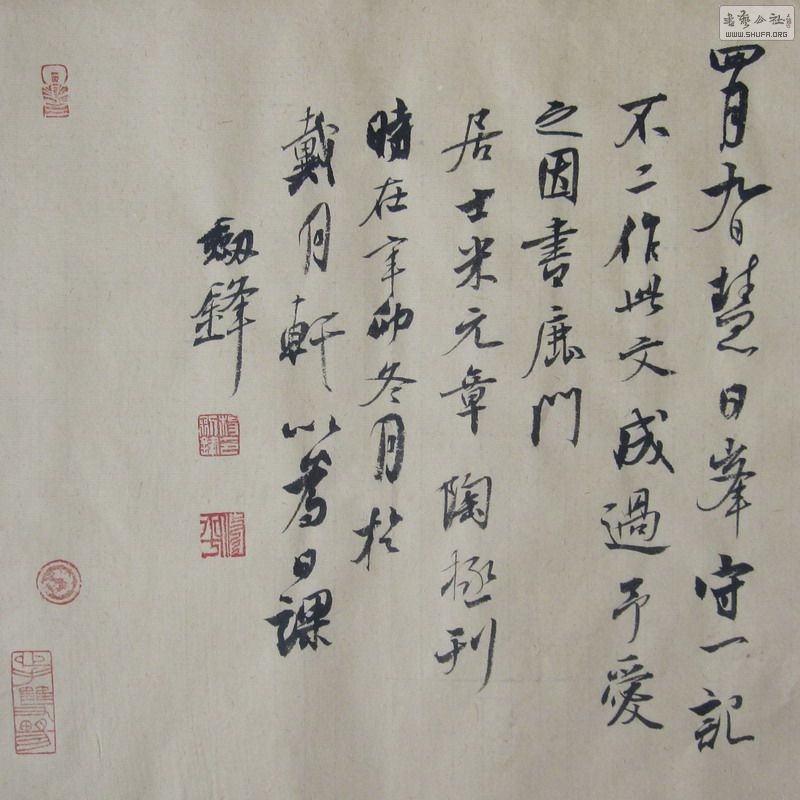 四月九日慧日峯守一記
不二作此文成過予愛
之因書鹿門
居士米元章 陶拯刊
時在辛卯冬月於
戴月軒以為日課
劍鋒
書藝公社
WWW.SHUFA.ORG